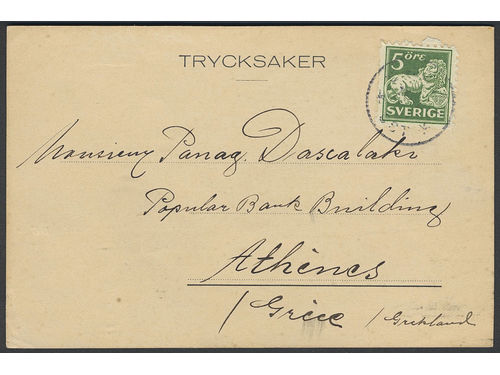 TRYCKSAKER
5 ÖRE
SVERIGE
Monsieur Panag. Dascalaki
Popular Bank Building
Athènes
/Grèce /Grekland